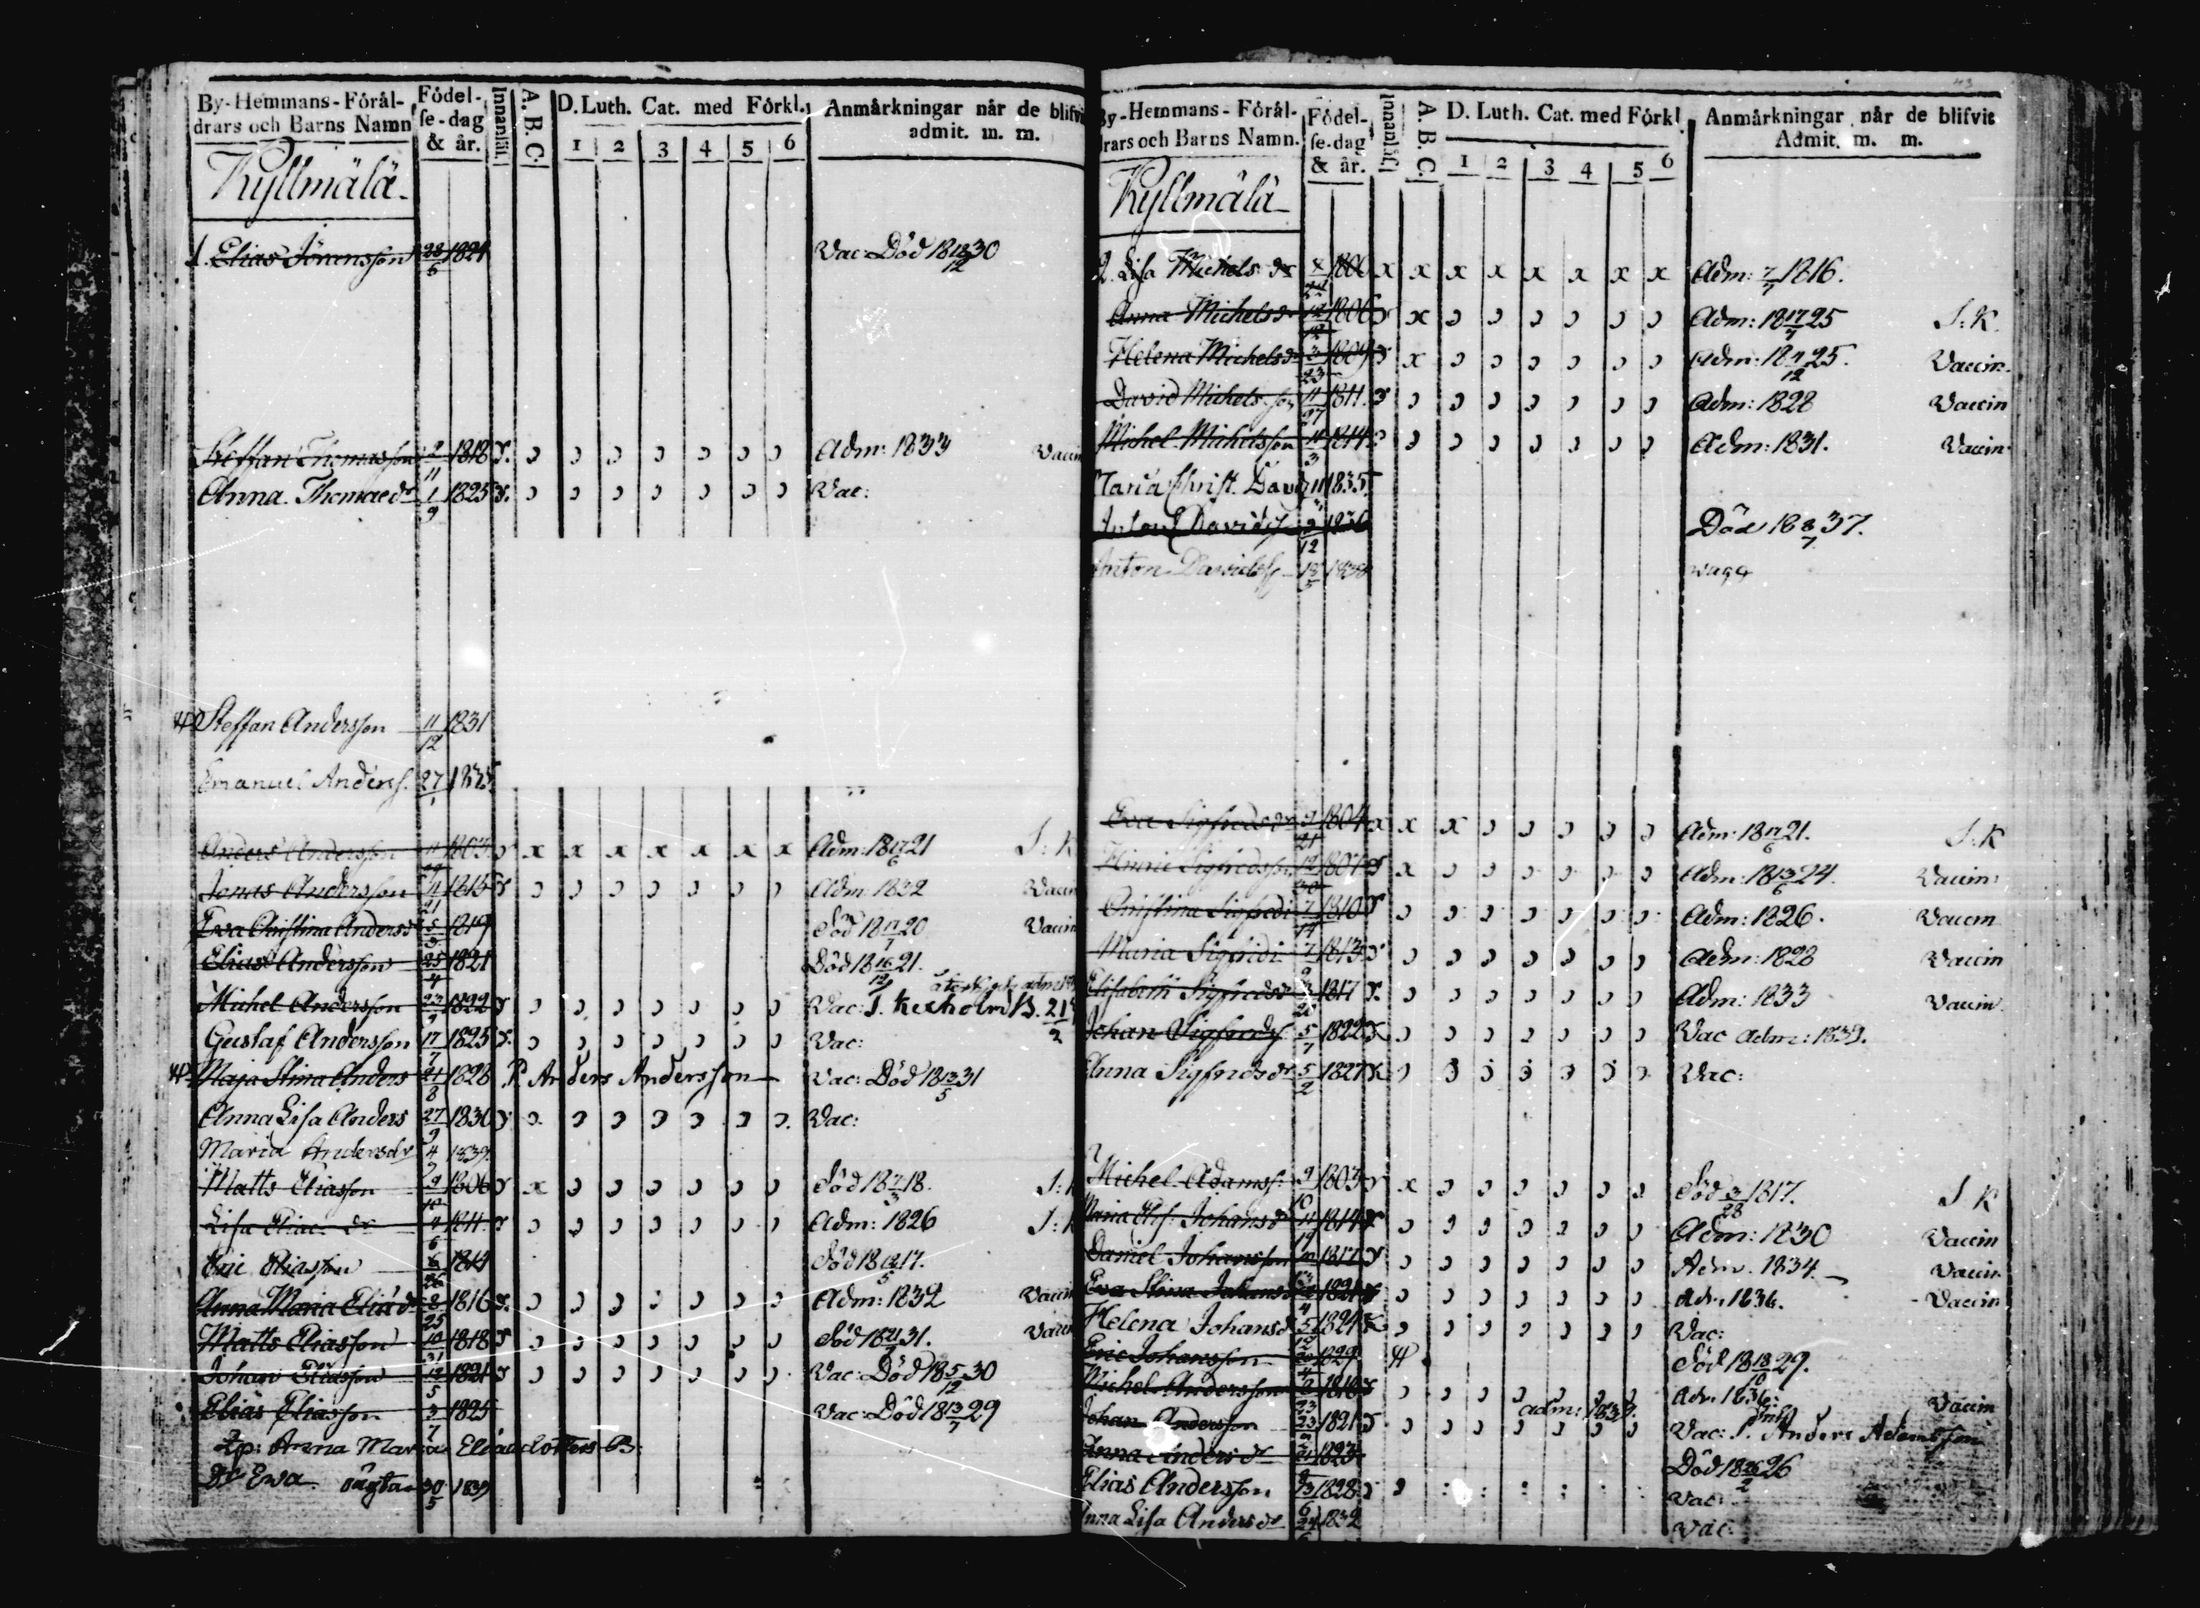 By-Hemmans-Förål-
drars och Barns Namn
Födel-
se-dag
& år.
Innanläs.
A. B. C.
D. Luth. Cat. med Förkl.
1 2 3 4 5 6
Anmårkningar når de blifvit
admit. m. m.
Kyllmälä
1. Elias Jönensson 28/5 1821 Vac: Död 18 18/12 30
Steffan Thomasson 2/11 1818 Adm: 1833 Vaccin
Anna Thomaedr 1/9 1825 Vac:
Steffan Andersson 11/12 1831
Emanuel Anders. 27/1 1835
Anders Andersson 11 1807 x x x x x x x Adm: 18 17/6 21 S: K
Jonas Andersson 11/21 1815 Adm 1832 Vaccin
Eva Christina Andersdr 5/3 1819 Död 18 17/7 20 Vaccin
Elias Andersson 25/4 1821 Död 18 16/12 21.
Michel Andersson 23/9 1822 Vac: P. Kexholm B. 21
Gustaf Andersson 17/7 1825 Vac:
Maja Stina Anders 21/8 1828 P. Anders Andersson Vac: Död 18 13/5 31
Anna Lisa Anders 27/9 1830 Vac:
Maria Andersdr 4 1834
Matts Eliasson 9/10 1806 x Död 18 7/3 18. S: K
Lisa Eliae dr 4/6 1811 Adm: 1826 S: K
Eric Eliasson 6/26 1814 Död 18 13/5 17.
Anna Maria Eliædr 8/25 1816 Adm: 1832 Vaccin
Matts Eliasson 10/31 1818 Död 18 21/7 31. Vaccin
Johan Eliasson 12/5 1821 Vac: Död 18 5/12 30
Elias Eliasson 3/7 1825 Vac: Död 18 13/7 29
Lp: Anna Maria Eliaedotters B:
Dr Ewa oägta 30/5 1839
By-Hemmans-Förål-
drars och Barns Namn.
Födel-
se-dag
& år.
Innanläs.
A. B. C.
D. Luth. Cat. med Förkl
1 2 3 4 5 6
Anmårkningar når de blifvit
Admit. m. m.
Kyllmälä
2. Lisa Michels dr 1800 x x x x x x x x Adm: 7/7 1816.
Anna Michelsdr 12/12 1806 x Adm: 18 17/7 25 S: K.
Helena Michelsdr 3/23 1809 x Adm: 18 4/12 25. Vaccin.
David Michelsson 11/27 1811. Adm: 1828 Vaccin
Michel Michelsson 11/3 1814 Adm: 1831. Vaccin
Maria Christ. David 11 1835
Anton Davids 2/12 1836 Död 18 8/7 37.
Anton Davids 18/5 1838
Eva Sigfredsdr 9/21 1804 x x x Adm: 18 17/6 21. S: K
Hinric Sigfredsson 12/30 1807 x Adm: 18 13/6 24. Vaccin
Christina Sigfredi 7/14 1810 Adm: 1826. Vaccin
Maria Sigfridi 7/9 1813 Adm: 1828 Vaccin
Elisabeth Sigfredsdr 1817 Adm: 1833 Vaccin
Johan Sigfreds 5/7 1822 Vac Adm: 1839.
Anna Sigfredsdr 5/2 1827 Vac:
Michel Adamss: 9/10 1803 x Död 3/28 1817. S K
Maria Elis: Johansdr 11/19 1814 Adm: 1830 Vaccin
Daniel Johansson 1817 Adm. 1834. Vaccin
Eva Stina Johansdr 1821 Adm 1836. Vaccin
Helena Johansdr 5/12 1824 Vac:
Eric Johansson 1829 Död 18 18/10 29.
Michel Andersson 1818 Adm 1836: Vaccin
Johan Andersson 23 1821 adm: 1839. Vac: P. Anders Adamsson
Anna Anders dr 1823 Död 18 26/2 26
Elias Andersson 13/6 1828 Vac:
Anna Lisa Andersdr 24/6 1832 Vac: